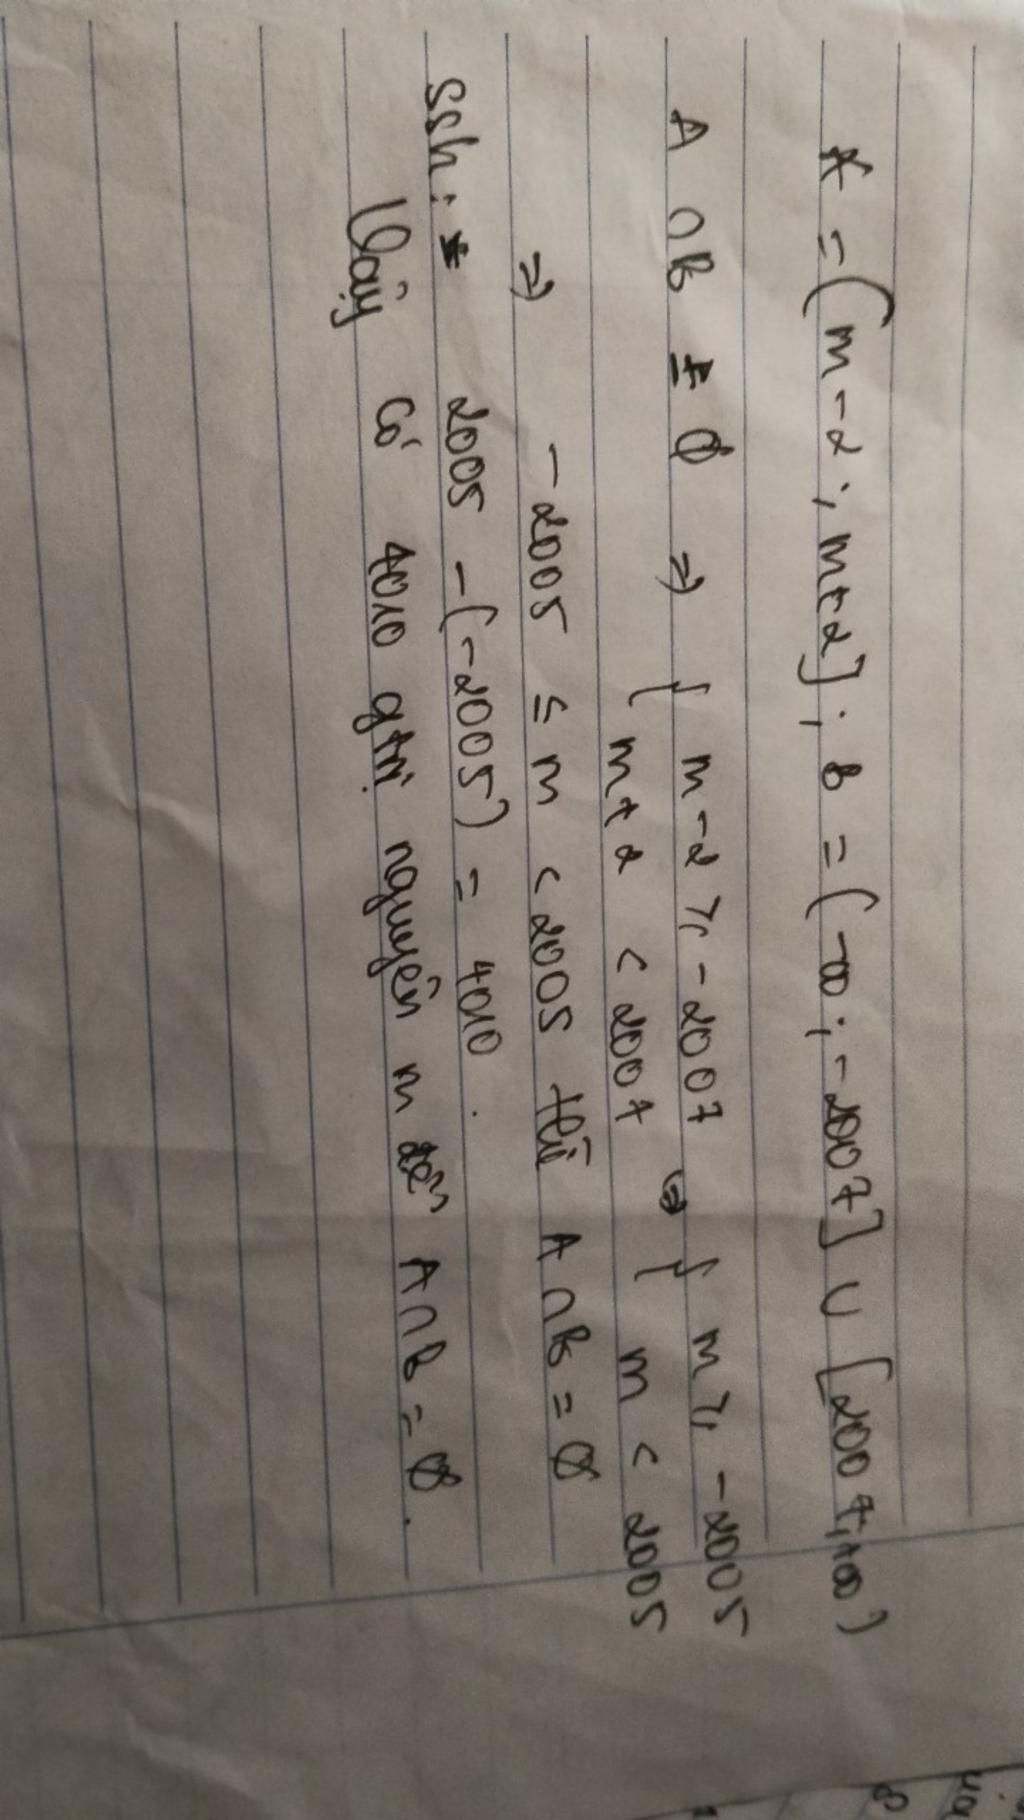 A = (m-2; m+2]; B = (-∞; -2007] ∪ [2007; +∞)
A ∩ B = ∅ ⇒ { m-2 ≥ -2007 ⇔ { m ≥ -2005
m+2 < 2007 m < 2005
⇒ -2005 ≤ m < 2005 thì A ∩ B = ∅
Ssh: 2005 - (-2005) = 4010.
Vậy có 4010 gtrị nguyên m để A ∩ B = ∅.